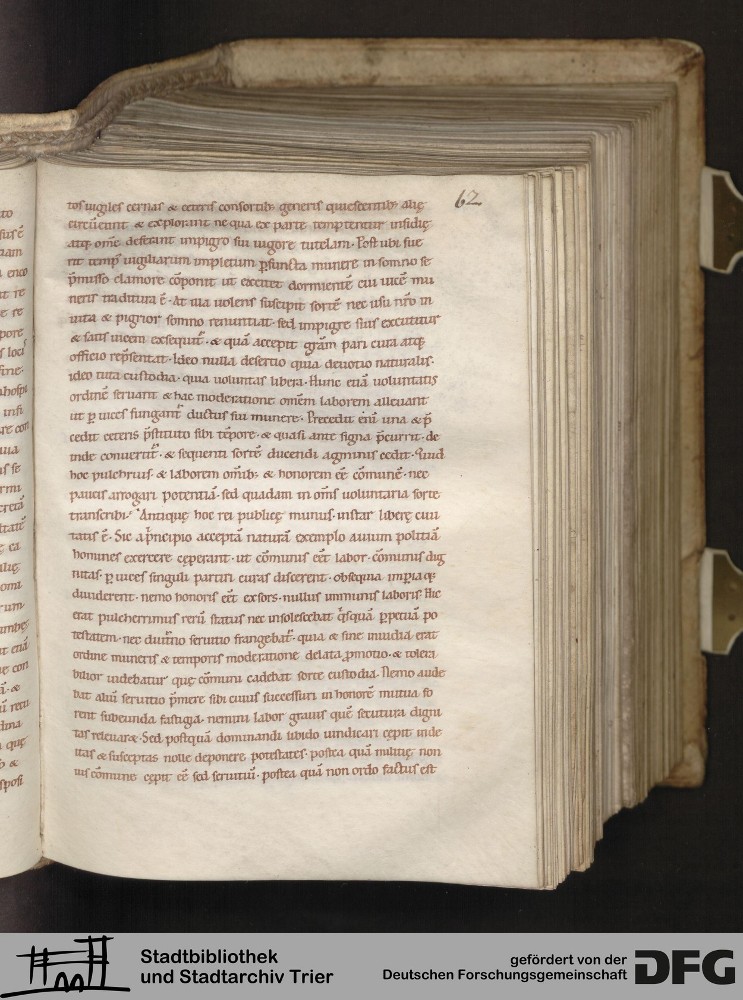 62
tos uigiles cernas & ceteris consortib; generis quiescentib; alię
circūeunt & explorant ne qua ex parte temptentur insidię
atq; om̄e deferant impigro sui uigore tutelam. Post ubi fue
rit temp' uigiliarum impletum pfuncta munere in somno se
p̄misso clamore cōponit ut excitet dormientē cui uicē mu
neris traditura ē. At illa uolens suscipit sortē nec usu nr̄o in
uita & pigrior somno renuntiat. sed impigre suis excutitur
& satis uicem exsequit᷑. & quā accepit gr̄am pari cura atq;
officio rep̄sentat. Ideo nulla desertio quia deuotio naturalis.
ideo tuta custodia. quia uoluntas libera. Hunc etiā uoluntatis
ordinē seruant & hac moderatione om̄em laborem alleuant
ut p uices fungant᷑ ductus sui munere. Precedit eni una & p̄
cedit ceteris p̄stituto sibi tēpore. & quasi ante signa p̄currit. de
inde conuertit᷑. & sequenti sortē ducendi agminis cedit. Quid
hoc pulchrius. & laborem om̄ib; & honorem eē cōmunē. nec
paucis arrogari potentiā. sed quadam in om̄s uoluntaria sorte
transcribi. Antiquę hoc rei publicę munus. instar liberę ciui
tatis ē. Sic a pncipio acceptā naturā exemplo auium politiā
homines exercere cęperant. ut cōmunis eēt labor. cōmunis dig
nitas. p uices singuli partiri curas discerent. obsequia impiaq;
diuiderent. nemo honoris eēt exsors. nullus immunis laboris. Hic
erat pulcherrimus rerū status nec insolescebat qsquā ppetuā po
testatem. nec diut̄no seruitio frangebat᷑. quia & sine inuidia erat
ordine muneris & temporis moderatione delata pmotio. & tolera
bilior uidebatur quę cōmuni cadebat sorte custodia. Nemo aude
bat aliū seruitio pmere sibi cuius successuri in honorē mutua fo
rent subeunda fastigia. nemini labor grauis quē secutura digni
tas releuaret. Sed postquā dominandi libido uindicari cępit inde
itas & susceptas nolle deponere potestates. postea quā militię non
uis cōmune cępit eē sed seruitiū. postea quā non ordo factus est
Stadtbibliothek
und Stadtarchiv Trier
gefördert von der
Deutschen Forschungsgemeinschaft
DFG